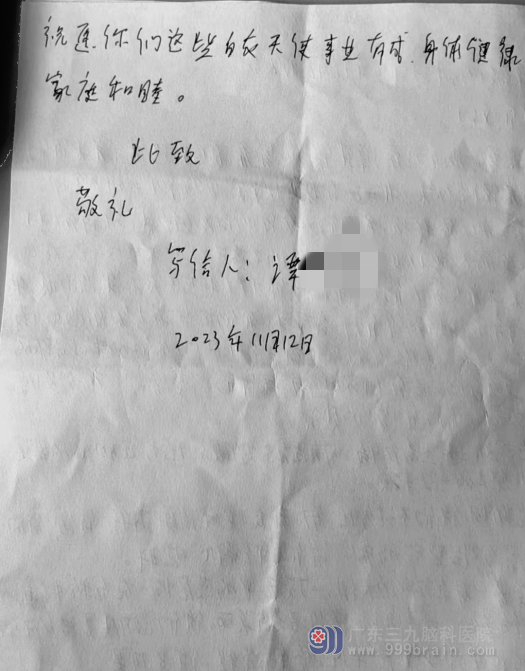 祝愿你们这些白衣天使事业有成.身体健康
家庭和睦。
此致
敬礼
写信人：谭
2023年11月12日
广东三九脑科医院
www.999brain.com